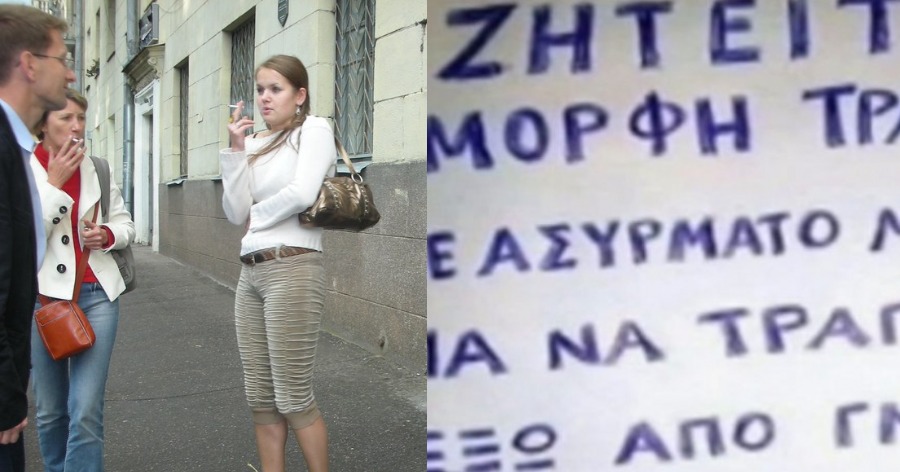 ΖΗΤΕΙΤ
ΜΟΡΦΗ ΤΡΑ
Ε ΑΣΥΡΜΑΤΟ
ΙΑ ΝΑ ΤΡΑΠ
ΕΞΩ ΑΠΟ ΓΝ